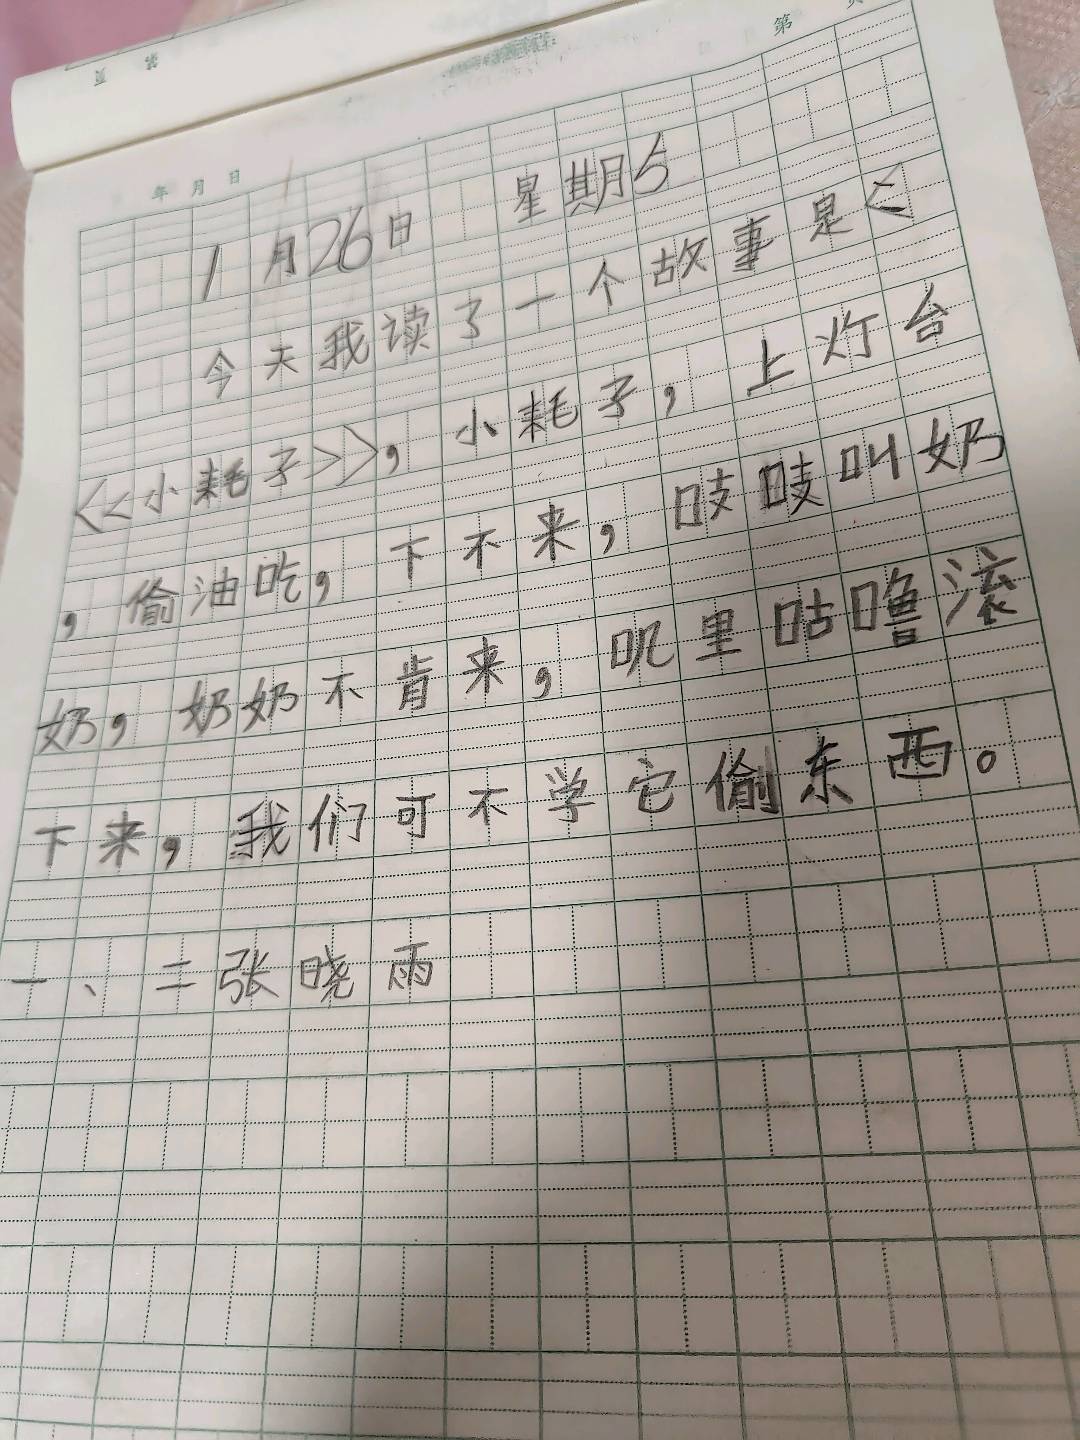 第 页
年 月 日
1月26日 星期5
今天我读了一个故事是
<<小耗子>>，小耗子，上灯台
，偷油吃，下不来，吱吱叫奶
奶，奶奶不肯来，叽里咕噜滚
下来，我们可不学它偷东西。
一、二张晓雨